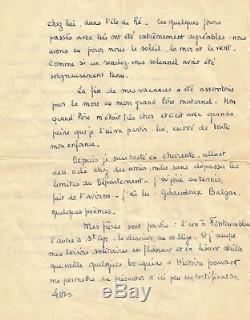 chez lui, dans l'île de Ré. Ces quelques jours
passés avec lui ont été extrêmement agréables. nous
avons eu pour nous le soleil, la mer et le vent.
Comme si un rendez vous solennel avait été
soigneusement tenu.
La fin de mes vacances a été assombrie
par la mort de mon grand père maternel. Mon
grand père m'était très cher et c'est avec grande
peine que je l'ai vu partir. lui, escorté de toute
mon enfance.
Depuis je suis resté en charente, allant
de ci de là chez des amis, mais sans dépasser les
limites du Département. j'ai joué au tennis,
fait de l'aviron. j'ai lu Giraudoux Balzac,
quelques poèmes.
Mes frères sont partis : l'un à Fontainebleau
l'autre à St Cyr. le dernier, au collège. Et j'occupe
mes loisirs solitaires en flânant et en lisant
quelques bouquins d'Histoire pouvant
me permettre de d'ici peu un certificat de
Lettres.
winamaz.com